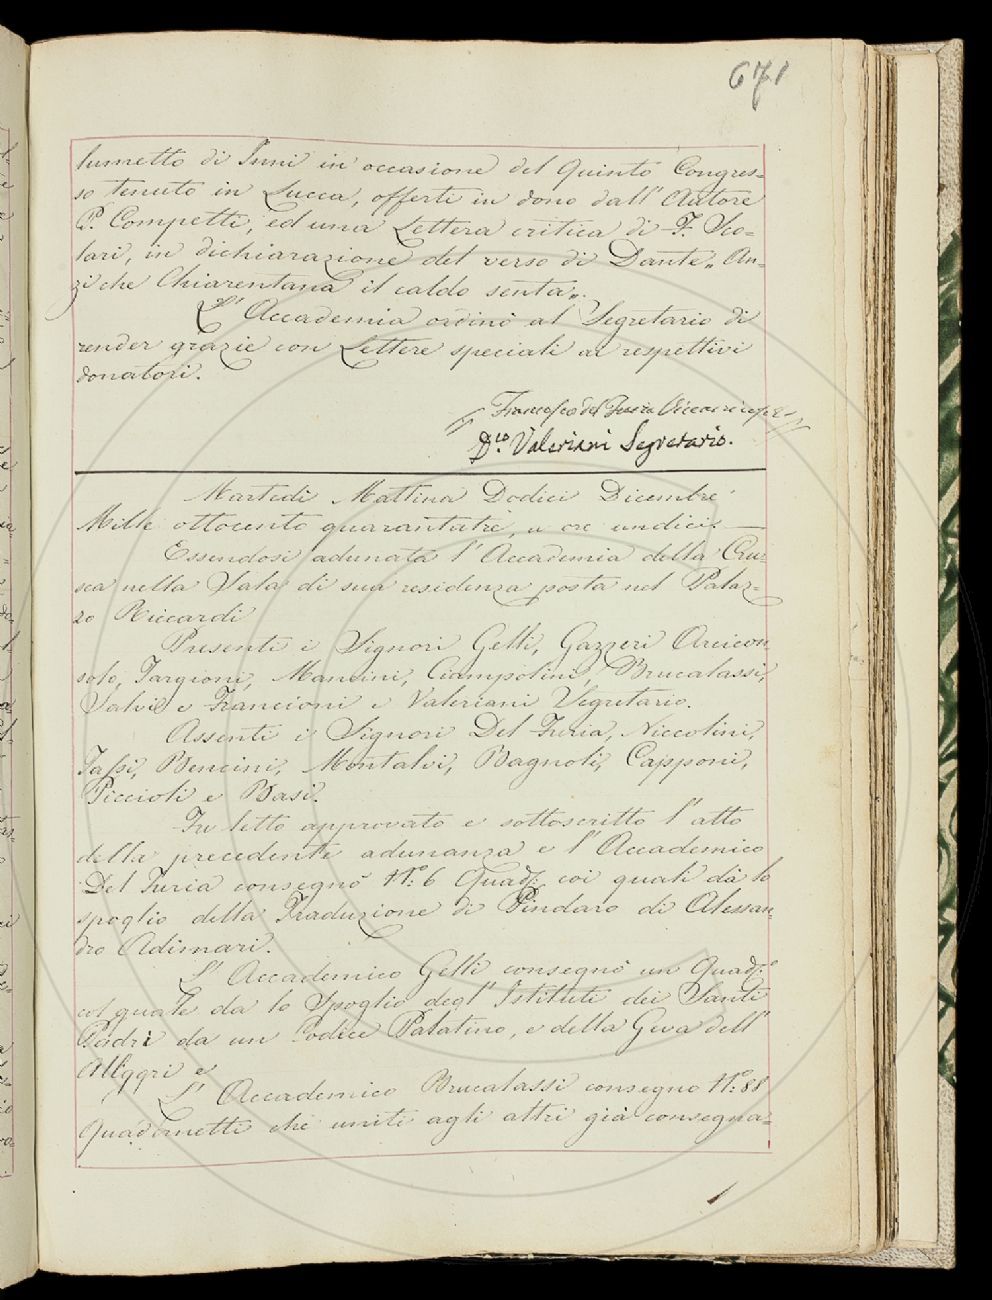 671
lumetto di Inni in occasione del Quinto Congres=
so tenuto in Lucca, offerti in dono dall'Autore
P. Competti, ed una Lettera critica di F. Sco=
lari, in dichiarazione del verso di Dante „ An=
zi che Chiarentana il caldo senta„.
L'Accademia ordinò al Segretario di
render grazie con Lettere speciali ai respettivi
donatori.
Francesco del Furia
Dco. Valeriani Segretario.
Martedì Mattina Dodici Dicembre
Mille ottocento quarantatrè, a ore undici. —
Essendosi adunata l'Accademia della Cru=
sca nella Sala di sua residenza posta nel Palaz=
zo Riccardi
Presenti i Signori Gelli, Gazzeri Arcicon
solo, Targioni, Mannini, Ciampolini, Brucalassi,
Salvi e Francioni e Valeriani Segretario.
Assenti i Signori Del Furia, Niccolini,
Tassi, Bencini, Montalvi, Bagnoli, Capponi,
Piccioli e Basi.
Fu letto approvato e sottoscritto l'atto
della precedente adunanza e l'Accademico
Del Furia consegnò N.º 6 Quadj: coi quali dà lo
spoglio della Traduzione di Pindaro di Alessan=
dro Adimari.
L'Accademico Gelli consegnò un Quadj:
col quale da lo Spoglio degl'Istituti dei Santi
Padri da un Codice Palatino, e della Geva dell'
Allegri e
L'Accademico Brucalassi consegno N.º 88
Quadernetti che uniti agli altri già consegna=